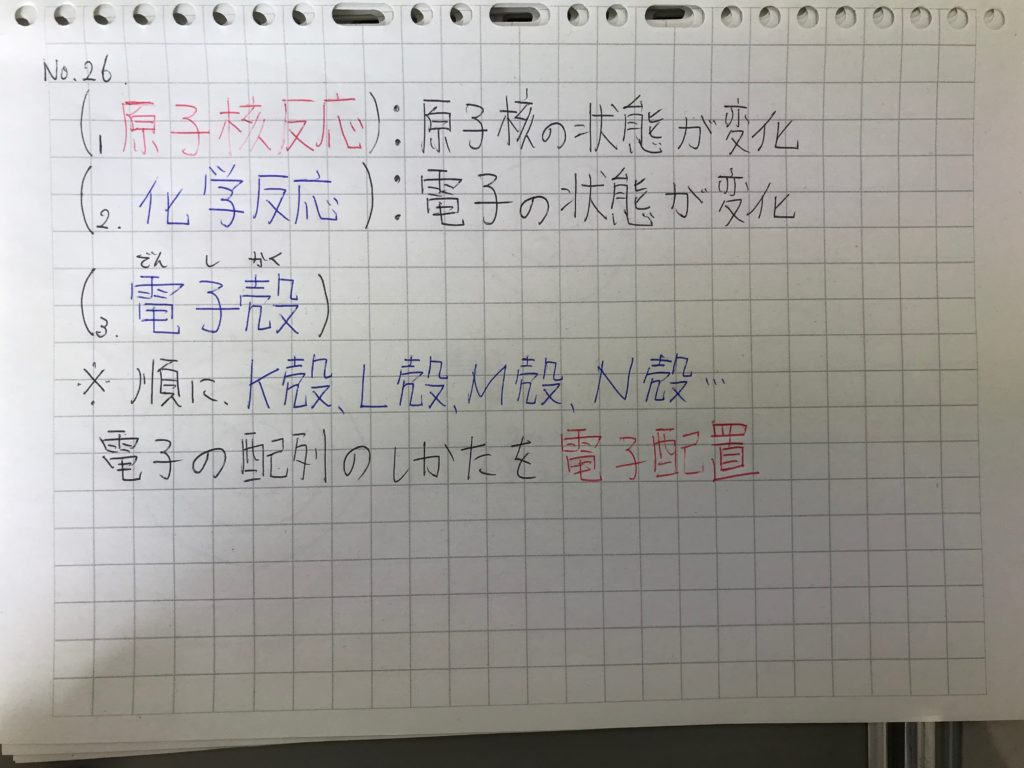 No.26.
(1. 原子核反応): 原子核の状態が変化
(2. 化学反応): 電子の状態が変化
でんしかく
(3. 電子殻)
※ 順に、K殻、L殻、M殻、N殻…
電子の配列のしかたを 電子配置